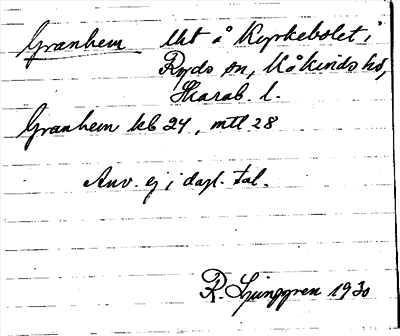 Granhem lht å Kyrkebolet i
Ryds sn, Kåkinds hd,
Skarab. l.
Granhem kb 24, mtl 28
Anv. ej i dagl. tal.
R. Ljunggren 1930